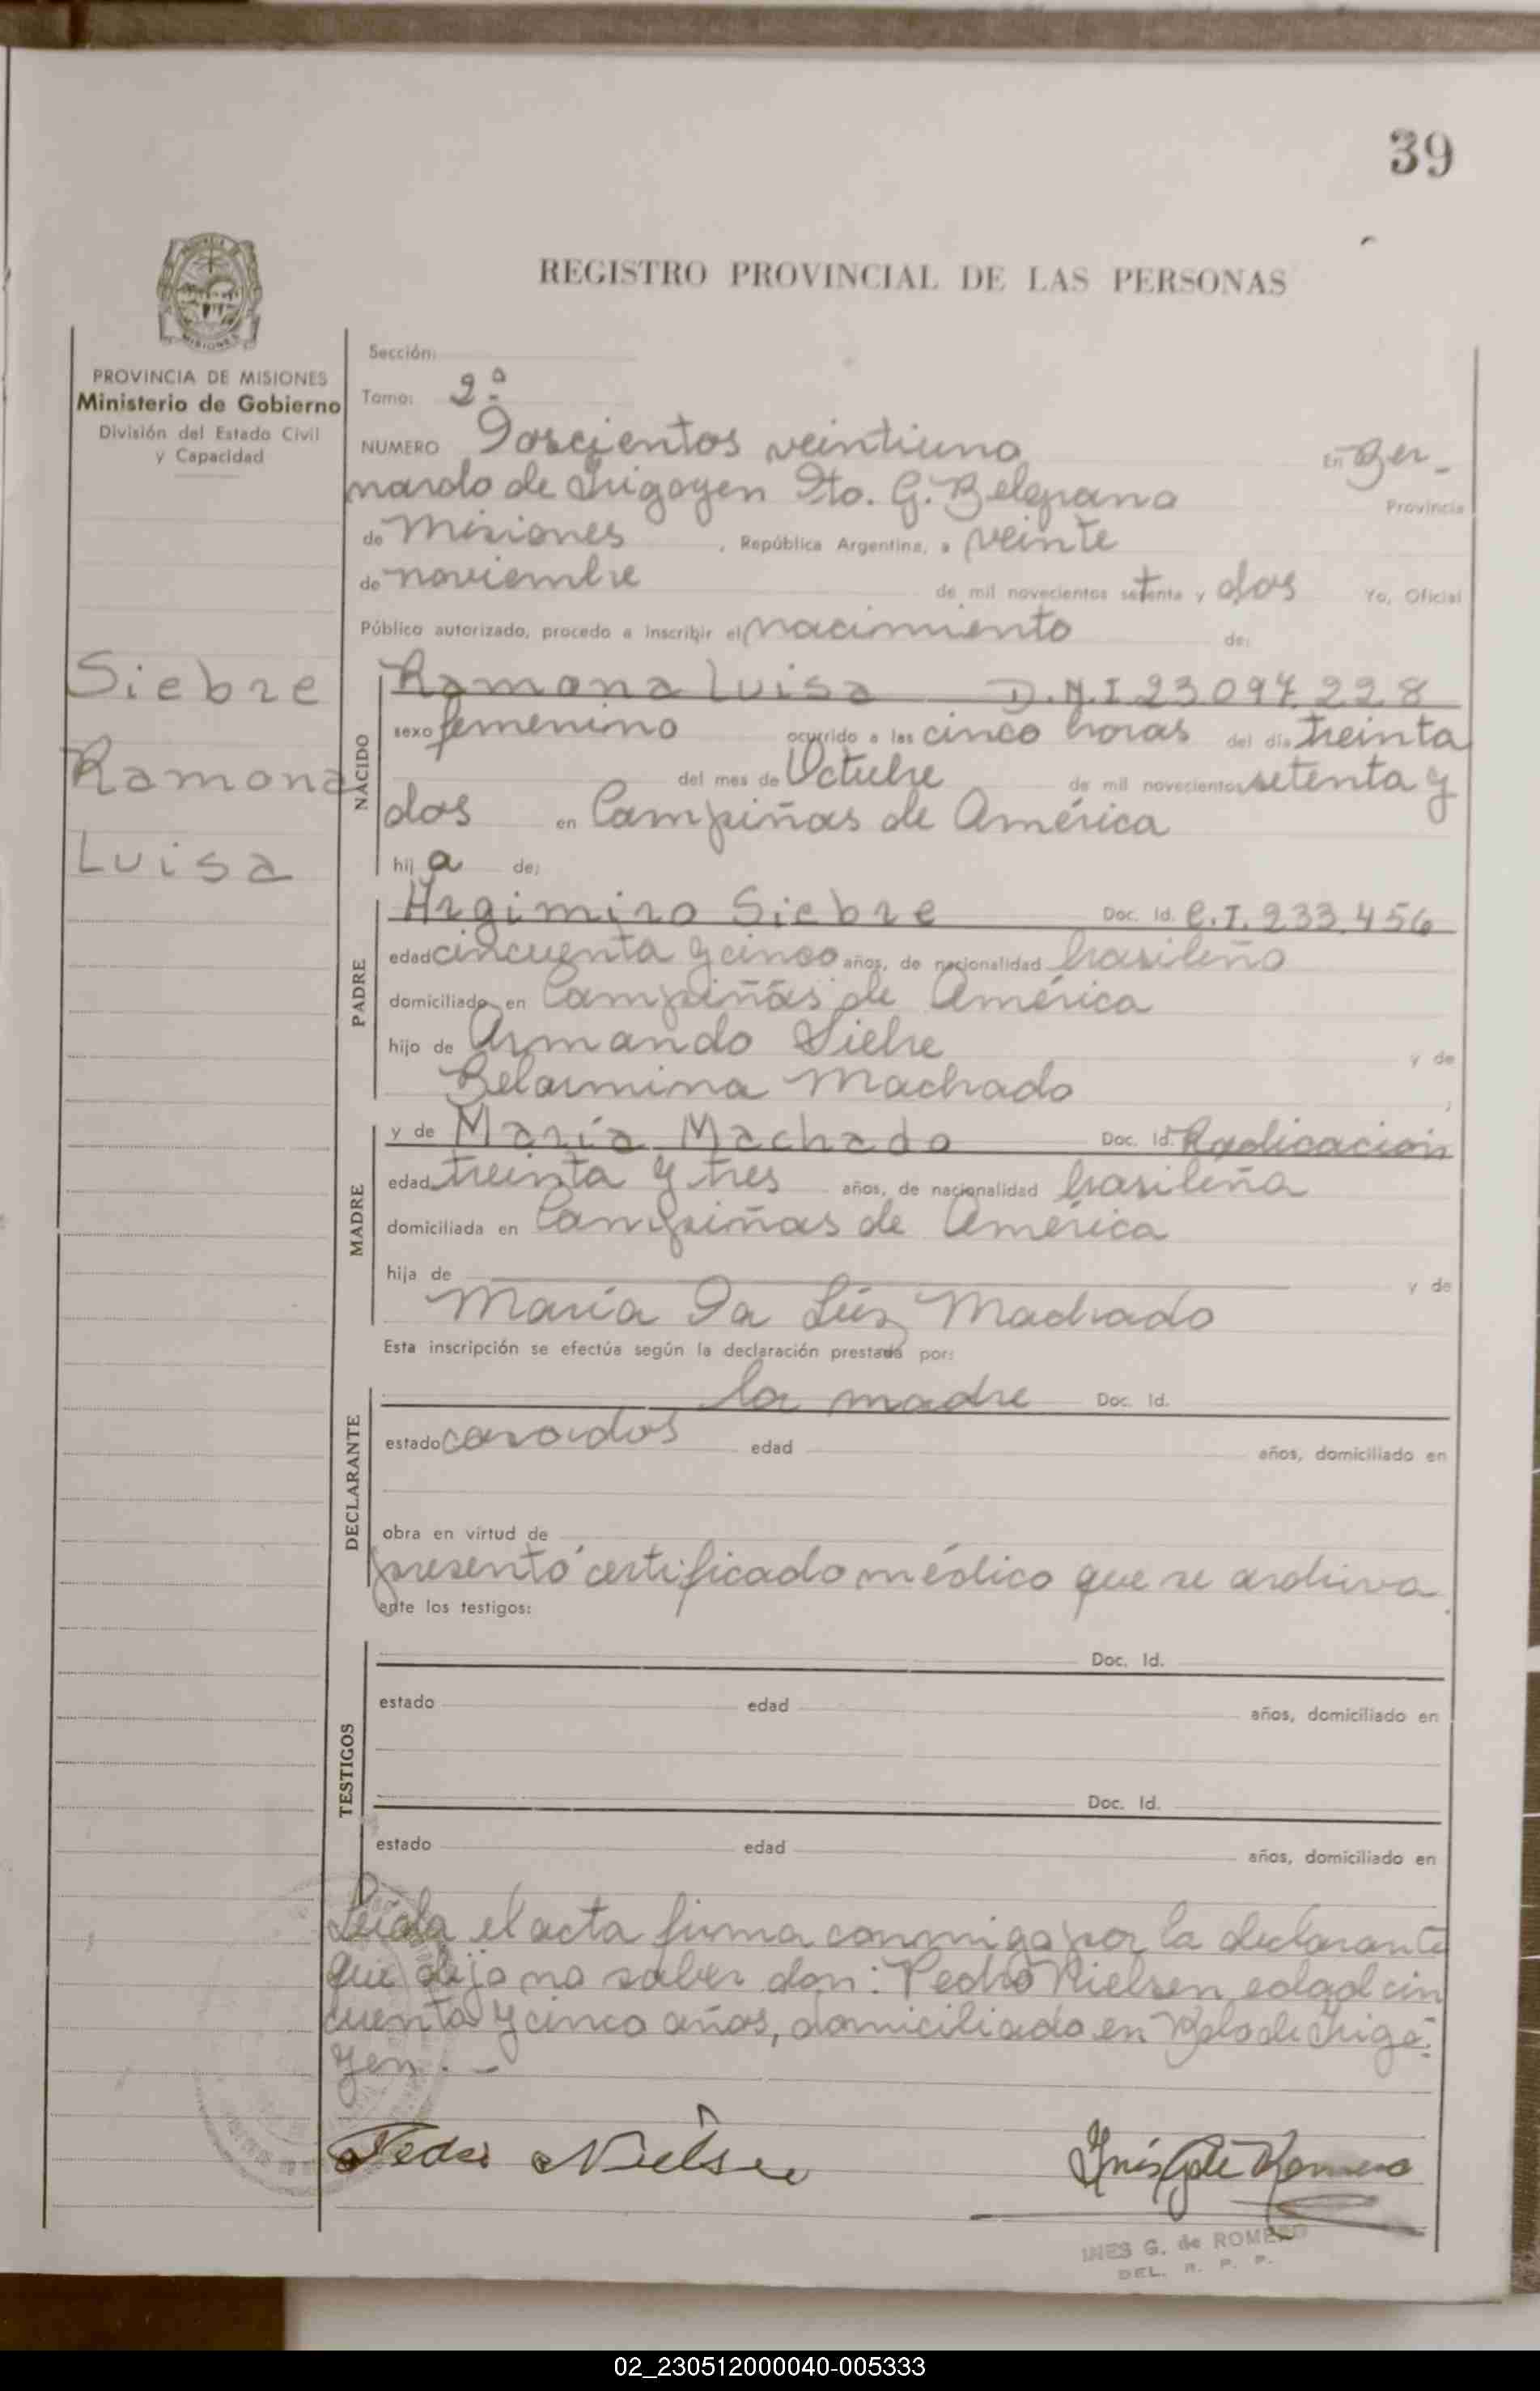 39
REGISTRO PROVINCIAL DE LAS PERSONAS
PROVINCIA DE MISIONES
Ministerio de Gobierno
División del Estado Civil
y Capacidad
Siebre
Ramona
Luisa
Sección:
Tomo: 2º
NUMERO Doscientos veintiuno En Ber-
nardo de Irigoyen Dto. G. Belgrano Provincia
de Misiones, República Argentina, a veinte
de noviembre de mil novecientos setenta y dos Yo, Oficial
Público autorizado, procedo a inscribir el nacimiento de:
NACIDO
Ramona Luisa D.N.I 23.097.228
sexo femenino ocurrido a las cinco horas del día treinta
del mes de Octubre de mil novecientos setenta y
dos en Campiñas de América
hija de:
PADRE
Argimiro Siebre Doc. Id. C.I. 233.456
edad cincuenta y cinco años, de nacionalidad brasileño
domiciliado en Campiñas de América
hijo de Armando Siebre y de
Belarmina Machado
MADRE
y de María Machado Doc. Id. Radicación
edad treinta y tres años, de nacionalidad brasileña
domiciliada en Campiñas de América
hija de y de
María Da Lúz Machado
Esta inscripción se efectúa según la declaración prestada por:
DECLARANTE
la madre Doc. Id.
estado casados edad años, domiciliado en
obra en virtud de
presentó certificado médico que se archiva
ante los testigos:
TESTIGOS
Doc. Id.
estado edad años, domiciliado en
Doc. Id.
estado edad años, domiciliado en
Leída el acta firma conmigo por la declarante
que dijo no saber don: Pedro Nielsen edad cin
cuenta y cinco años, domiciliado en Bdo de Irigo-
yen.-
Pedro Nielsen
Inés G de Romero
INES G. de ROMERO
DEL. R. P. P.
02_230512000040-005333